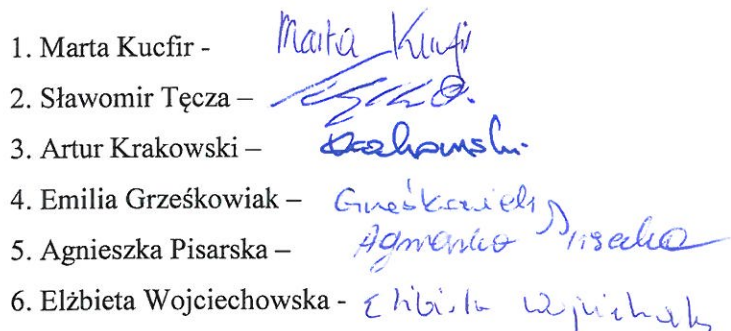 1. Marta Kucfir - Marta Kucfir
2. Sławomir Tęcza –
3. Artur Krakowski – Krakowski
4. Emilia Grześkowiak – Grześkowiak
5. Agnieszka Pisarska – Agnieszka Pisarska
6. Elżbieta Wojciechowska - Elżbieta